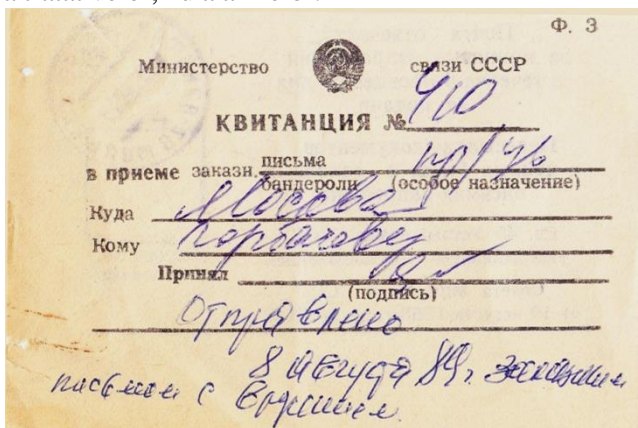 Ф. 3
Министерство связи СССР
КВИТАНЦИЯ № 410
в приеме заказн. письма
бандероли (особое назначение)
Куда Москва
Кому Горбачеву
Принял
(подпись)
Отправлено
8 августа 89г. заказным
письмом с